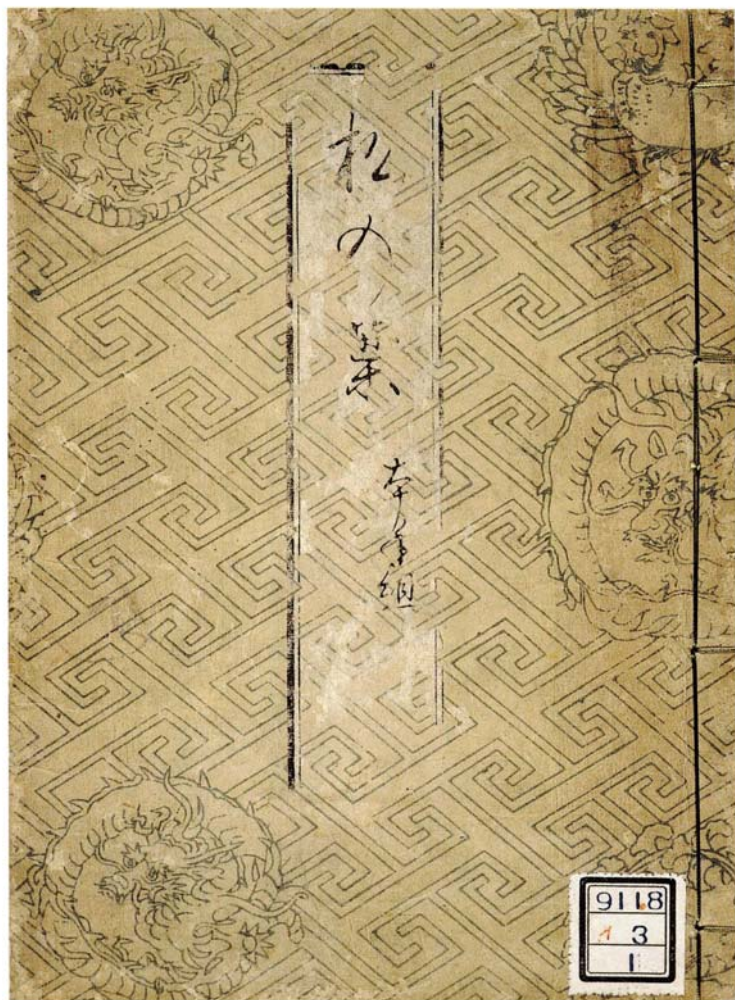 松の葉 本手組
911.8
3
1